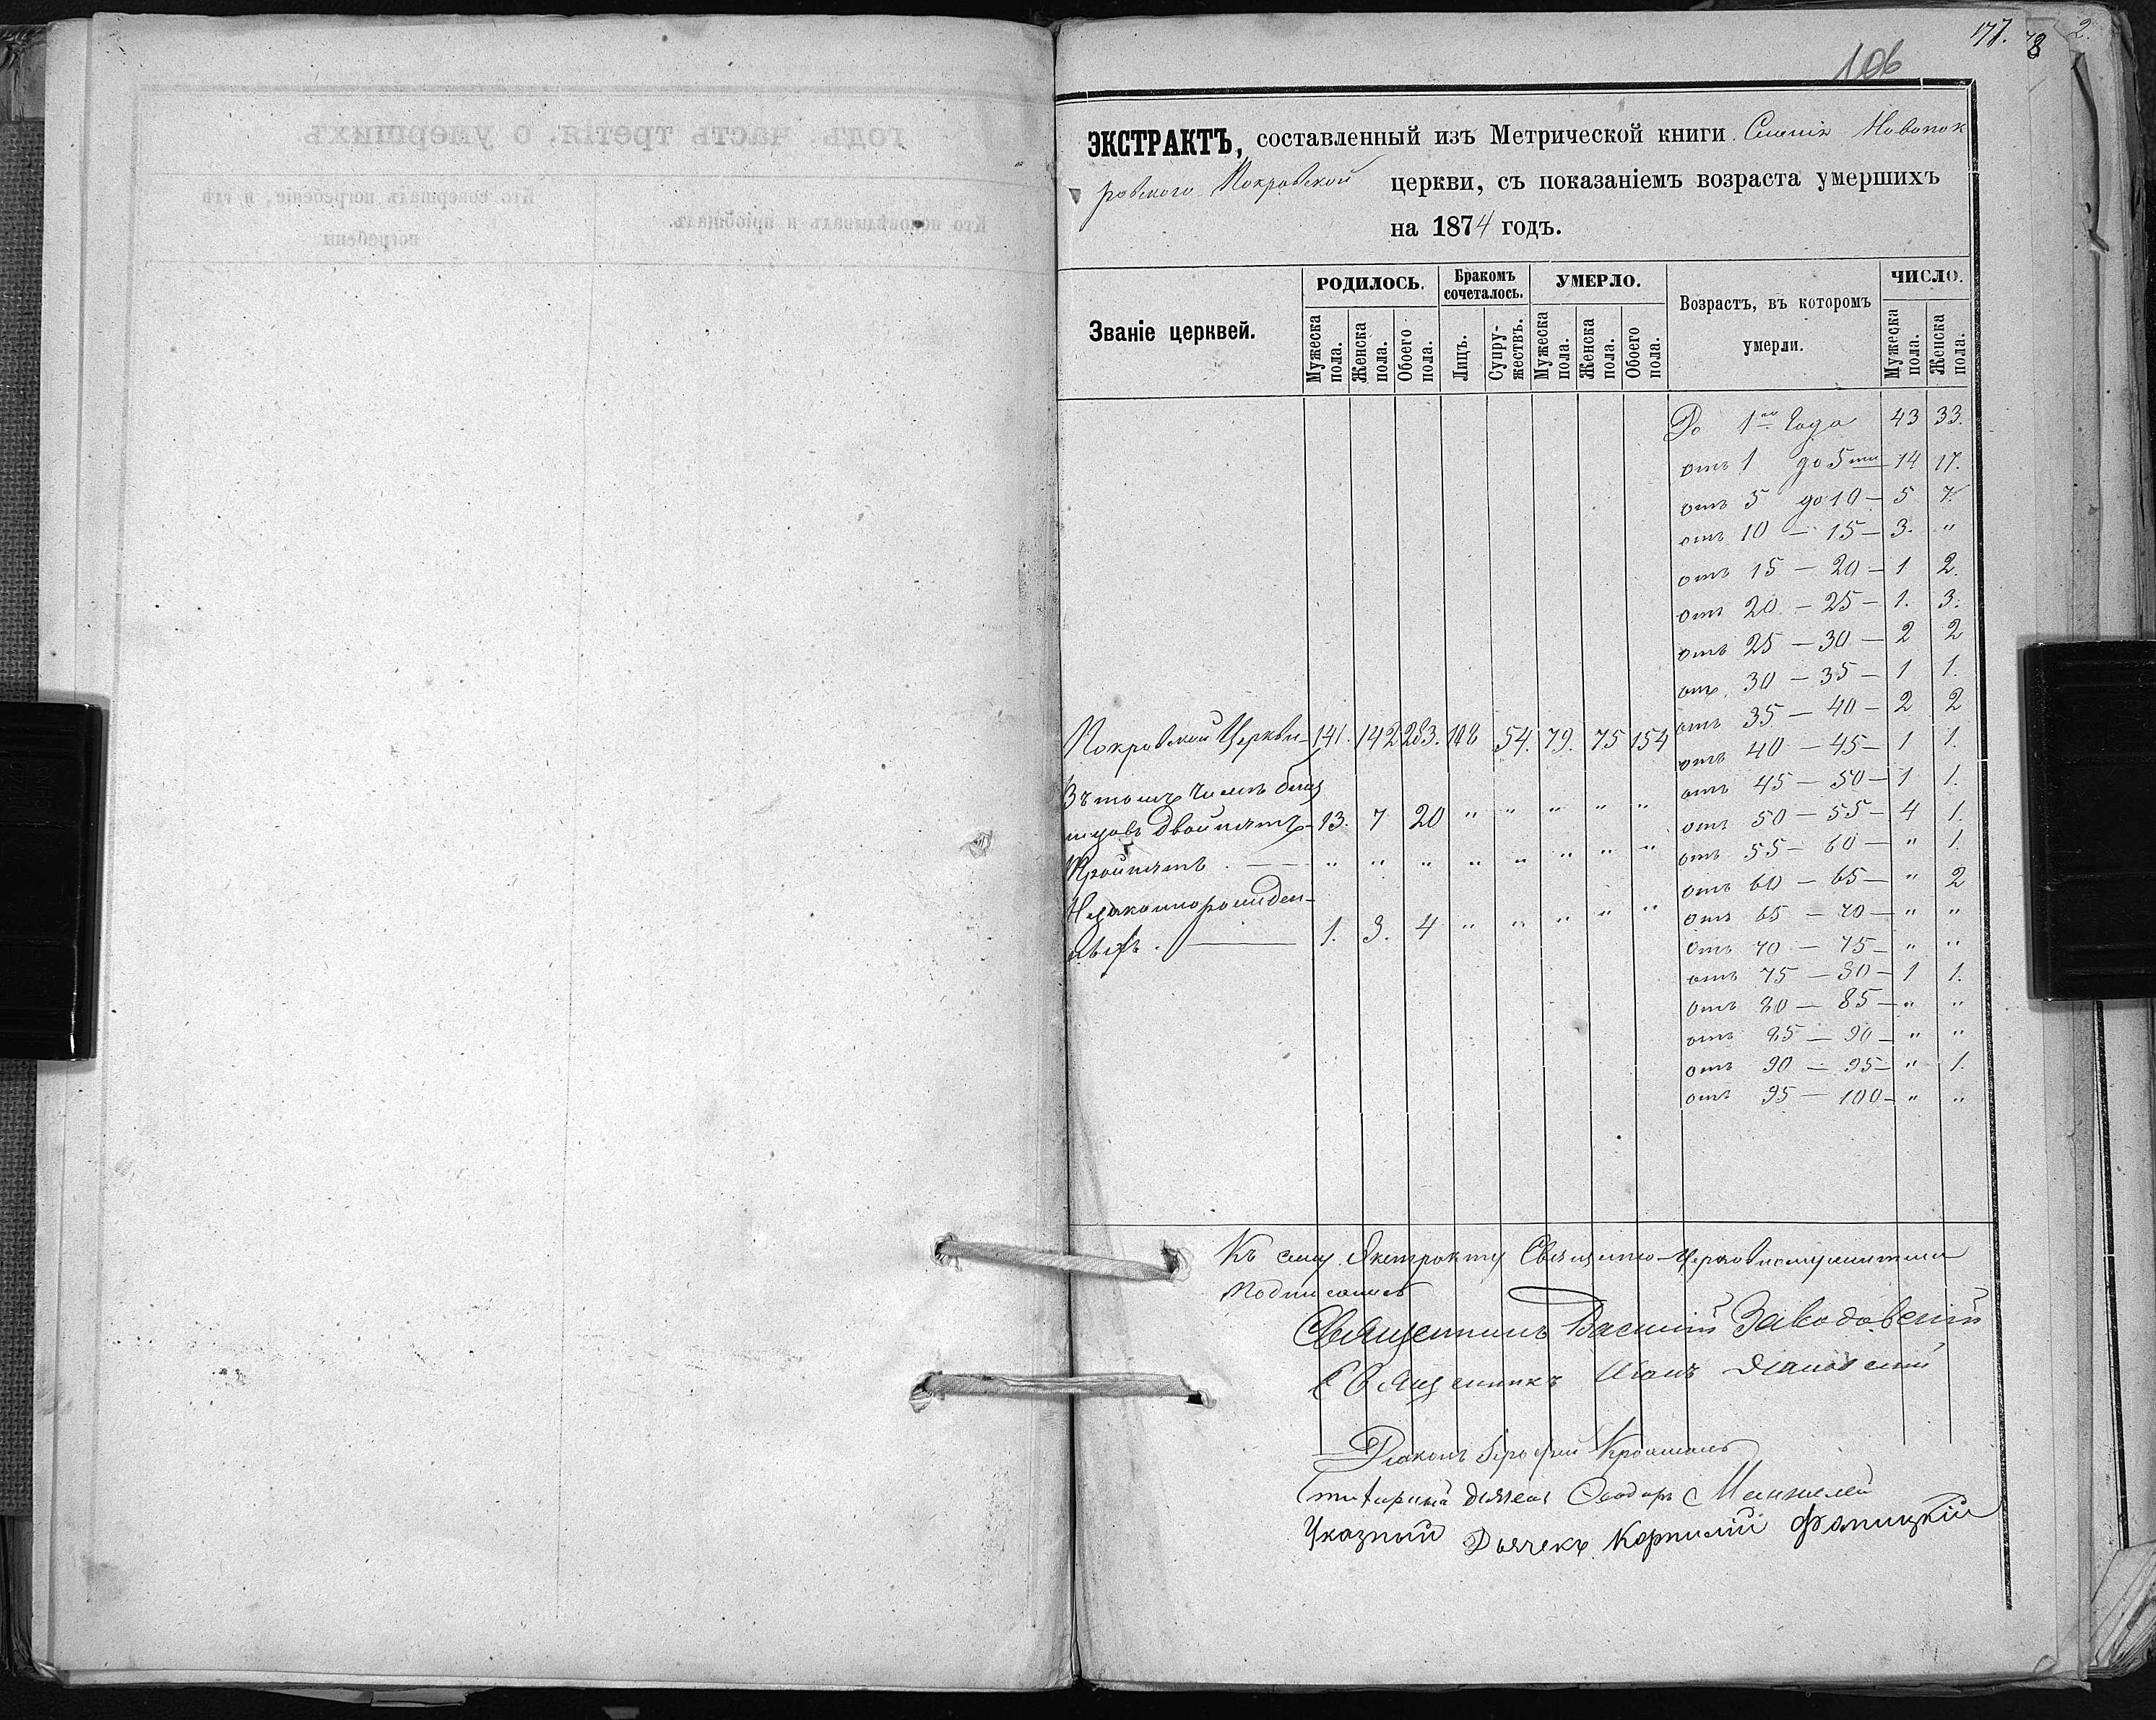 177. 78 2.
106
ЭКСТРАКТЪ, составленный изъ Метрической книги Новопок
ровского Покровской церкви, съ показаніемъ возраста умершихъ
на 1874 годъ.
Званіе церквей. РОДИЛОСЬ. Бракомъ сочеталось. УМЕРЛО. Возрастъ, въ которомъ умерли. ЧИСЛО.
Мужеска пола. Женска пола. Обоего пола. Лицъ. Супружествъ. Мужеска пола. Женска пола. Обоего пола. Мужеска пола. Женска пола.
До 1го Года 43 33.
отъ 1 до 5ти 14 17.
отъ 5 до 10 — 5 7.
отъ 10 — 15 — 3. "
отъ 15 — 20 — 1 2.
отъ 20 — 25 — 1. 3.
отъ 25 — 30 — 2 2
отъ 30 — 35 — 1 1.
отъ 35 — 40 — 2 2
Покровской Церкви — 141. 142 283. 108 54. 79. 75 154
отъ 40 — 45 — 1 1.
отъ 45 — 50 — 1 1.
Въ томъ числѣ
двойнятъ — 13. 7 20 " " " " "
отъ 50 — 55 — 4 1.
отъ 55 — 60 — " 1.
Тройнятъ . — " " " " " " " "
отъ 60 — 65 — " 2
Незаконнорожден-
ныхъ . — 1. 3. 4 " " " " "
отъ 65 — 70 — " "
отъ 70 — 75 — " "
отъ 75 — 80 — 1 1.
отъ 80 — 85 — " "
отъ 85 — 90 — " "
отъ 90 — 95 — " 1.
отъ 95 — 100 — " "
Къ сему Экстракту Священно-Церковнослужители
подписались
Священникъ Василій Заводовскій
Священникъ Яновскій
Діаконъ
дьячекъ Феодоръ
Указный Дьячекъ Корнилій Фаницкій